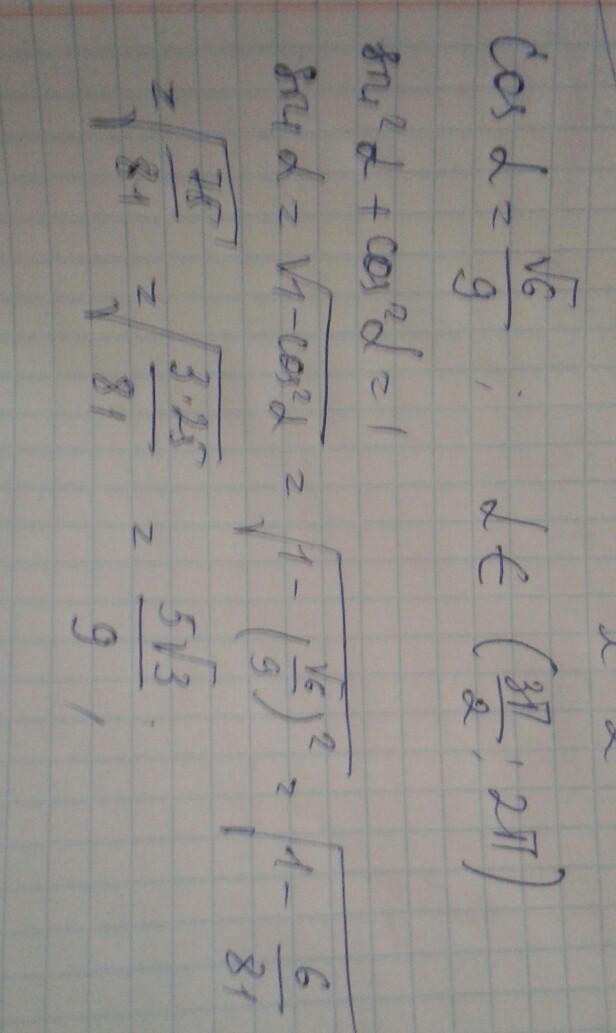 cos α = √6/9 ; α ∈ (3π/2 ; 2π)
sin²α + cos²α = 1
sin α = √(1-cos²α) = √(1-(√6/9)²) = √(1-6/81)
= √(75/81) = √(3·25/81) = 5√3/9 ;